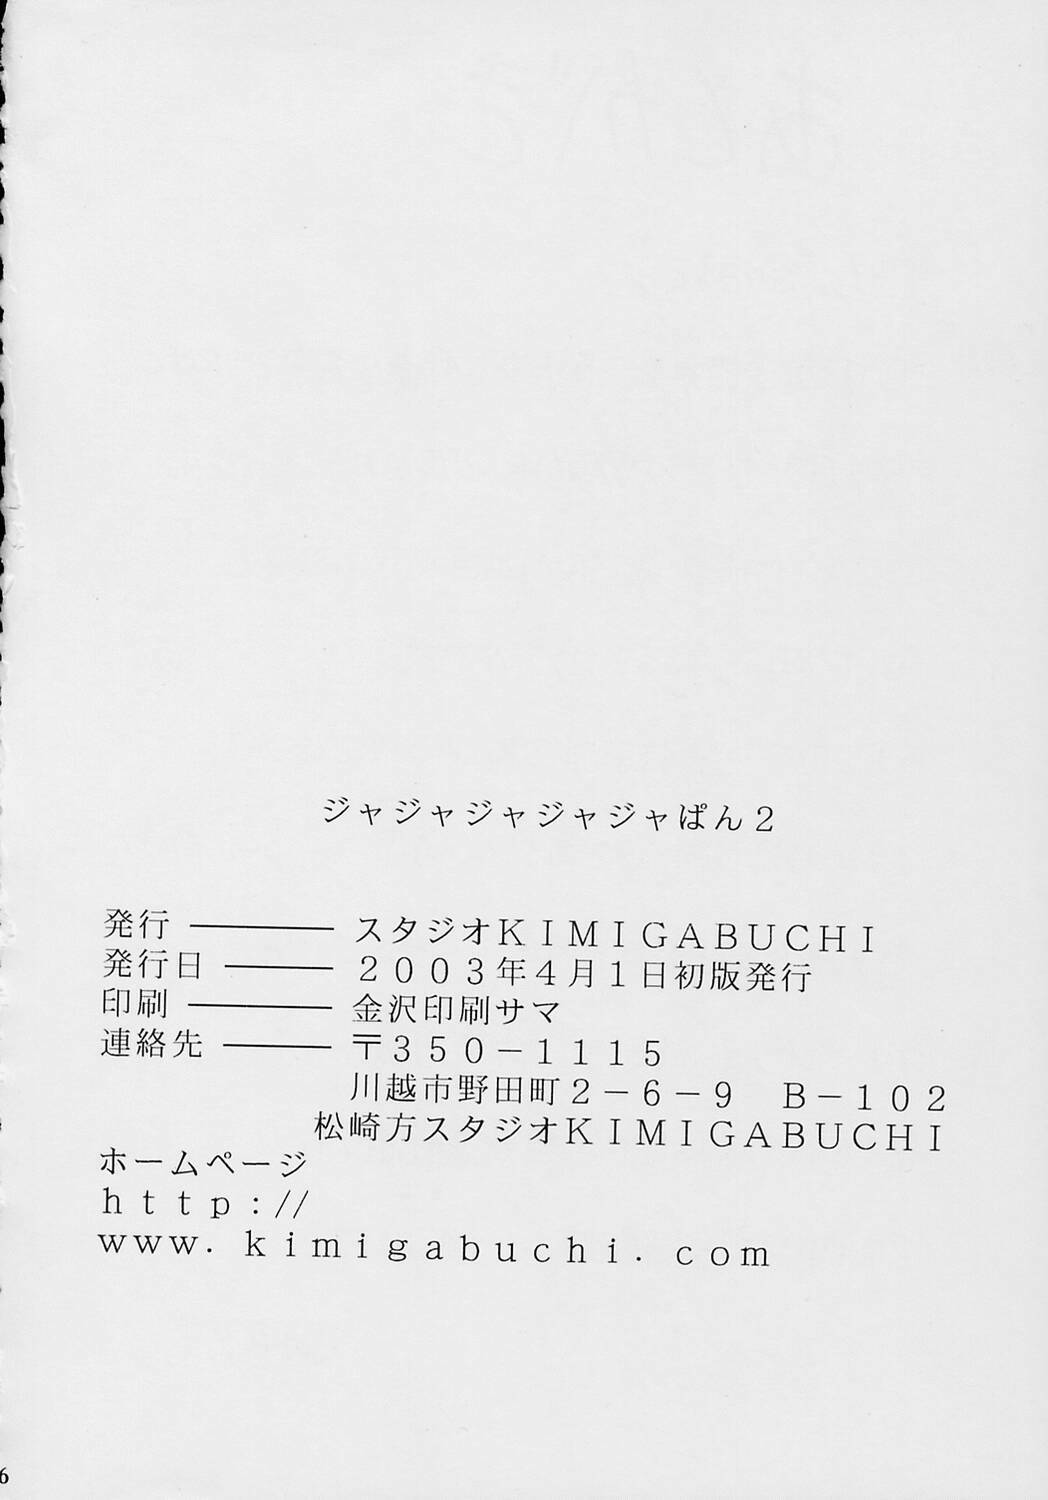 ジャジャジャジャジャぱん２
発行 ―――― スタジオＫＩＭＩＧＡＢＵＣＨＩ
発行日 ――― ２００３年４月１日初版発行
印刷 ―――― 金沢印刷サマ
連絡先 ――― 〒３５０－１１１５
川越市野田町２－６－９　Ｂ－１０２
松崎方スタジオＫＩＭＩＧＡＢＵＣＨＩ
ホームページ
ｈｔｔｐ：//
ｗｗｗ．ｋｉｍｉｇａｂｕｃｈｉ．ｃｏｍ
6